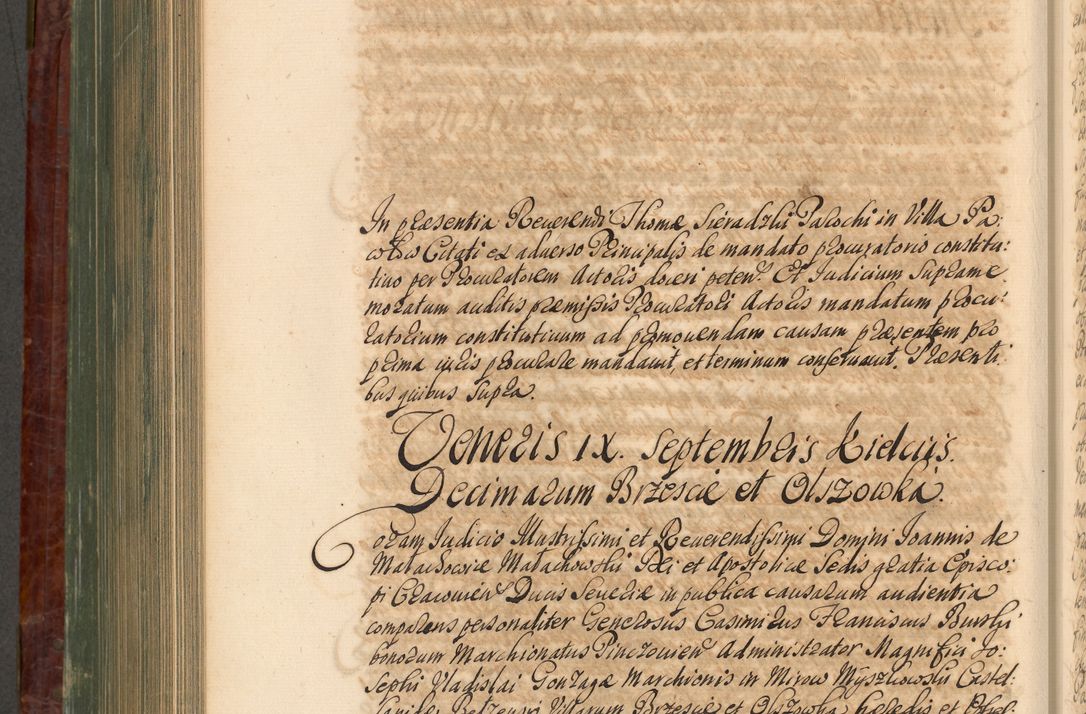 In præsentia Reuerendi Thomæ Sieradzki Parochi in Villa Pa:
Citati ex aduerso Principalis de mandato procuratorio constitu:
tiuo per Procuratorem Actoris doceri peten. Et Judicium Supreme
moratum auditis præmissis Procuratori Actoris mandatum procu:
ratorium constitutiuum ad promouendam causam præsentem pro
prima iuris procurare mandauit, et terminum conseruauit. Præsenti:
bus quibus supra.
Veneris IX. Septembris Kielciis.
Decimarum Brzescie et Olszowka.
Coram Judicio Illustrissimi et Reuerendissimi Domini Joannis de
Małachowice Małachowski Dei et Apostolicæ Sedis gratia Episco:
pi Cracouien Ducis Seueriæ in publica causarum audientia
comparens personaliter Generosus Casimirus Franciscus Burski
bonorum Marchionatus Pinczouien Administrator Magnifici Jo:
sephi Vladislai Gonzagæ Marchionis in Mirow Myszkowski Castel:
Villarum Brzescie et Olszowka hæredis et